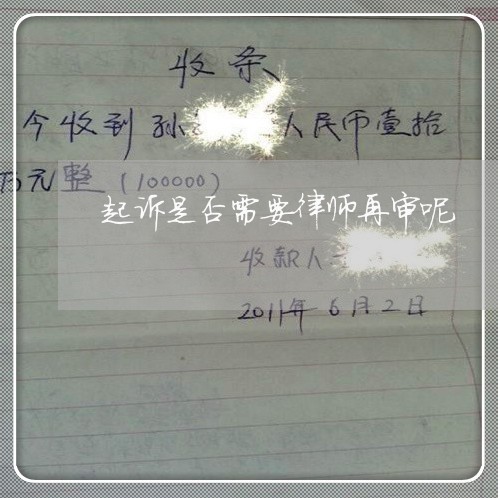 收条
今收到孙人民币壹拾
万元整(100000)
起诉是否需要律师再审呢
收款人
2011年6月2日